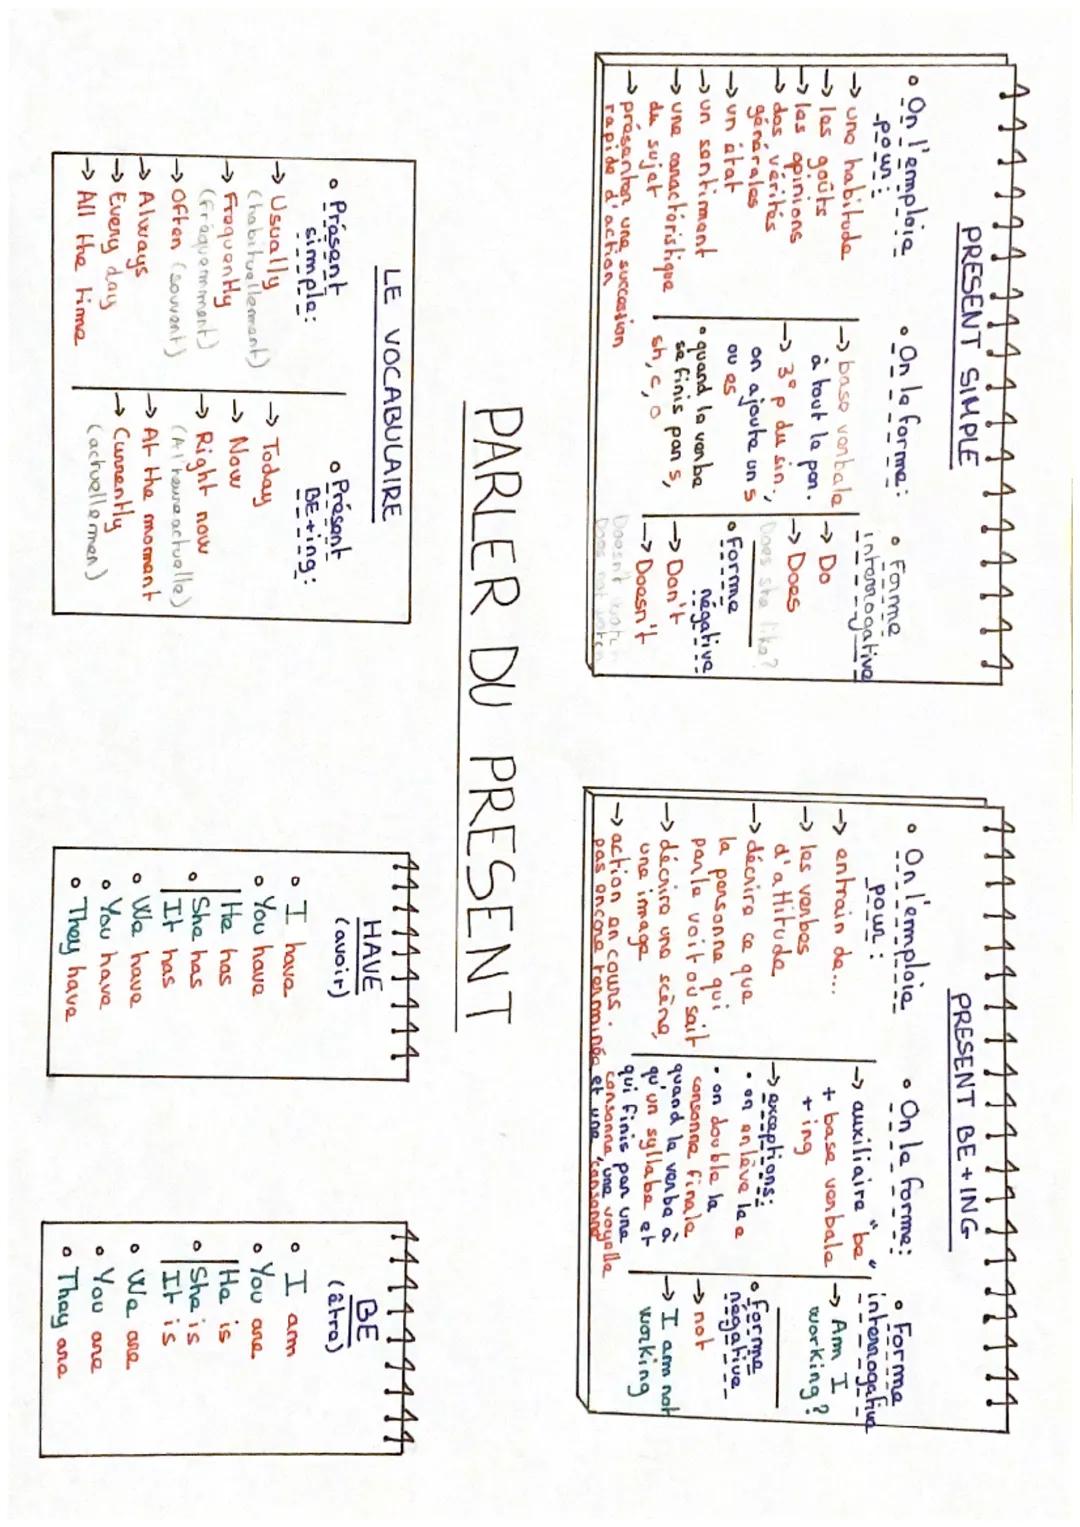 PRESENT SIMPLE
• On l'emploie
pour :
→ une habitude
→ les goûts
→ les opinions
→ des vérités
générales
→ un état
→ un sentiment
→ une caractéristique
du sujet
→ présenter une succession
rapide d'action
• On le forme :
→ base verbale
à tout le per.
→ 3° p du sin.,
on ajoute un s
ou es
• quand le verbe
se finis par s,
sh, c, o
• Forme
interrogative
→ Do
→ Does
Does she like?
• Forme
négative
→ Don't
→ Doesn't
Doesn't watch
Does not
PRESENT BE + ING
• On l'emploie
pour :
→ entrain de...
→ les verbes
d'attitude
→ décrire ce que
la personne qui
parle voit ou sait
→ décrire une scène,
une image
→ action en cours.
pas encore terminée
• On le forme :
→ auxiliaire "be"
+ base verbale
+ ing
→ exceptions :
• on enlève le e
• on double la
consonne finale
quand le verbe à
qu'un syllabe et
qui finis par une
consonne, une voyelle
et une consonne
• Forme
interrogative
→ Am I
working?
• Forme
négative
→ not
→ I am not
working
PARLER DU PRESENT
LE VOCABULAIRE
• Présent
simple :
→ Usually
(habituellement)
→ Frequently
(fréquemment)
→ Often (souvent)
→ Always
→ Every day
→ All the time
• Présent
BE+ing :
→ Today
→ Now
→ Right now
(A l'heure actuelle)
→ At the moment
→ Currently
(actuellemen)
HAVE
(avoir)
• I have
• You have
He has
• She has
It has
• We have
• You have
• They have
BE
(être)
• I am
• You are
He is
• She is
It is
• We are
• You are
• They are